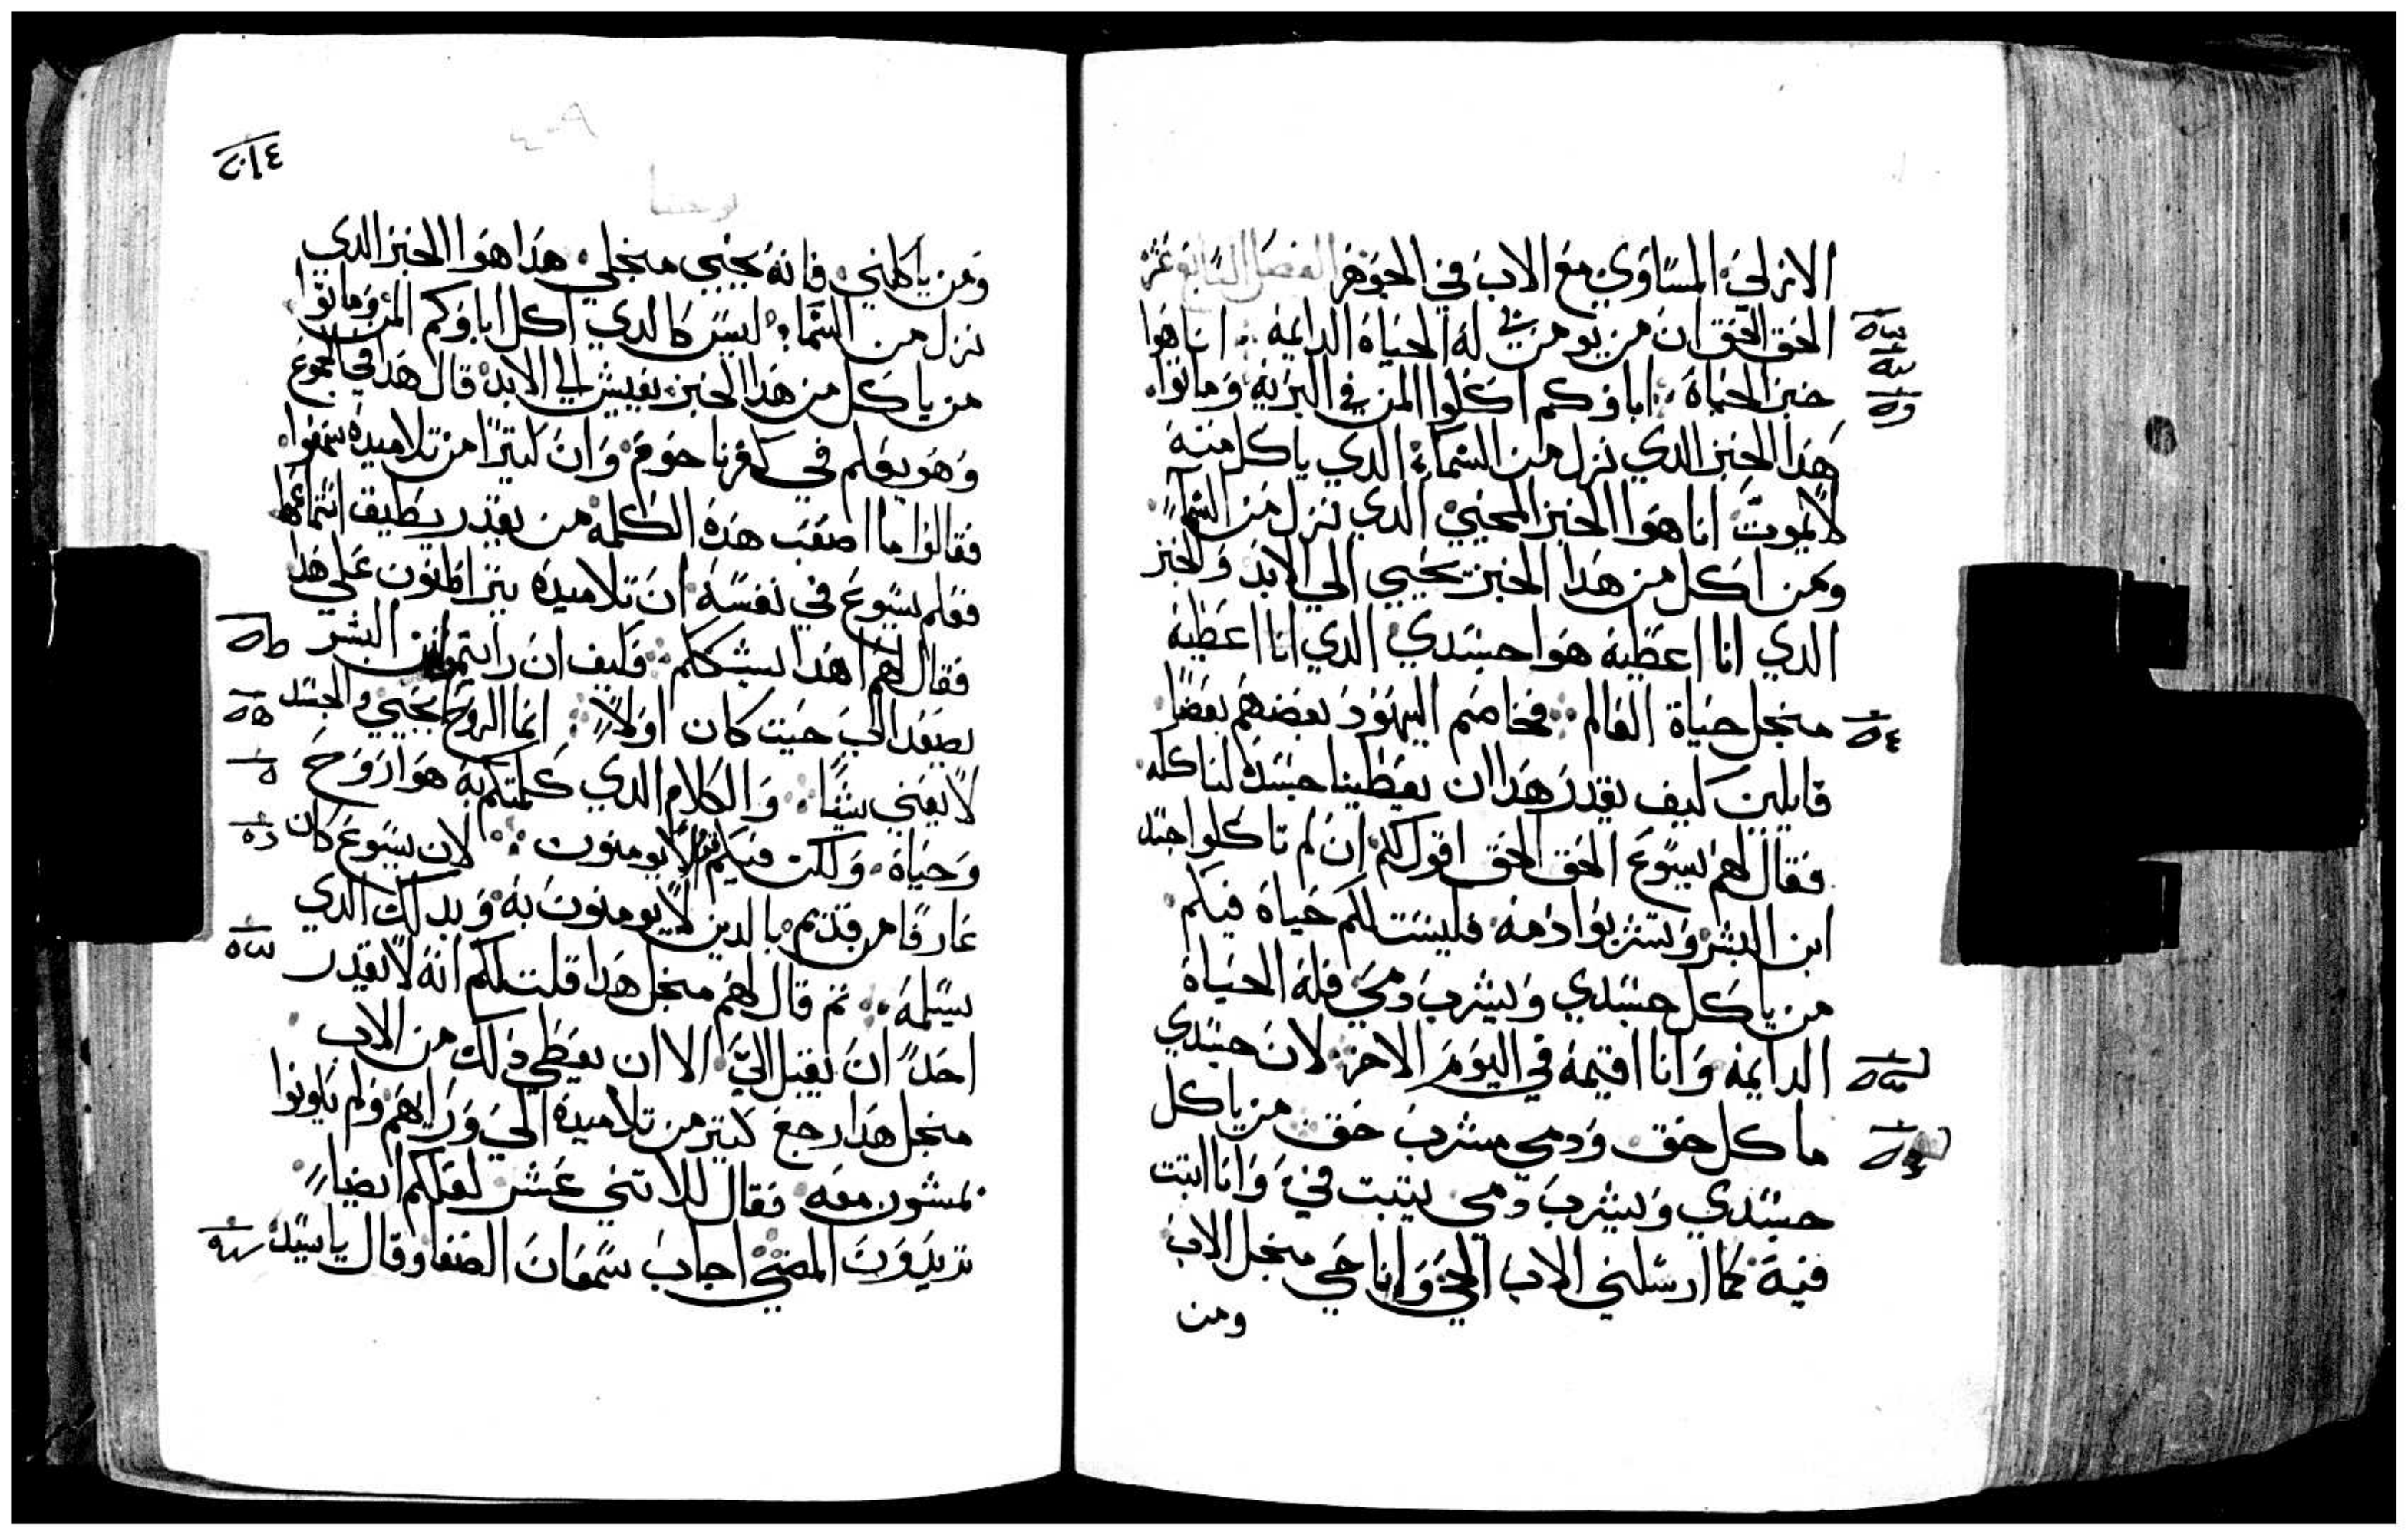 الازلي المساوي مع الاب في الجوهر الفصل السابع عشر
الحق الحق ان من يومن بي له الحياة الدايمه انا هوا
خبز الحياة اباوكم اكلوا المن في البريه وماتوا
هدا الخبز الدي نزل من السماء الدي ياكل منه
لا يموت انا هوا الخبز المحيي الدي نزل من السماء
ومن اكل من هدا الخبز يحيي الي الابد والخبز
الدي انا اعطيه هوا جسدي الدي انا اعطيه
منجل حياة العالم فخاصم اليهود بعضهم بعضا
قايلين كيف يقدر هدا ان يعطينا جسده لناكله
فقال لهم يسوع الحق الحق اقول لكم ان لم تاكلوا جسد
ابن البشر وتشربوا دمه فليست لكم حياة فيكم
من ياكل جسدي ويشرب دمي فله الحياة
الدايمه وانا اقيمه في اليوم الاخر لان جسدي
ماكل حق ودمي مشرب حق من ياكل
جسدي ويشرب دمي يتبت في وانا اتبت
فيه كما ارسلني الاب الحي وانا حي منجل الاب
ومن
يوحنا
ومن ياكلني فانه يحيي منجلي هدا هوا الخبز الدي
نزل من السماء ليس كالدي اكل اباوكم المن وماتوا
من ياكل من هدا الخبز يعيش الي الابد قال هدا في المجموع
وهو يعلم في كفرناحوم وان كتيرا من تلاميده سمعوا
فقالوا ما اصعب هده الكلمه من يقدر يطيق استماعها
فعلم يسوع في نفسه ان تلاميده يتراطنون علي هدا
فقال لهم اهدا يشككم فكيف ان رايتم ابن البشر
يصعد الي حيت كان اولا انما الروح يحيي والجسد
لا يغني شيا والكلام الدي كلمتكم به هوا روح
وحياة ولكن فيكم من لا يومنون لان يسوع كان
عارفا من قديم بالدين لا يومنون به وبدلك الدي
يسلمه تم قال لهم منجل هدا قلت لكم انه لا يقدر
احد ان يقبل الي الا ان يعطي دلك من الاب
منجل هدا رجع كتير من تلاميده الي ورايهم ولم يكونوا
يمشون معه فقال للاتني عشر لعلكم ايضا
تريدون المضي اجاب سمعان الصفا وقال يا سيد